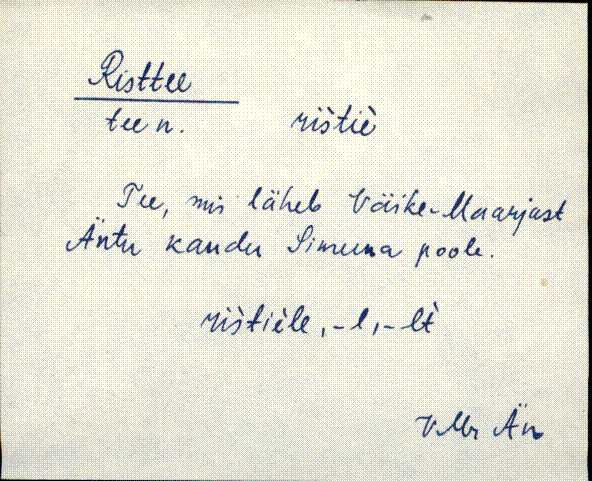 Risttee
tee n. rìs̀tiè
Tee, mis läheb Väike-Maarjast
Äntu kaudu Simuna poole.
rìs̀tièle, -l, -lt̀
VMr Än